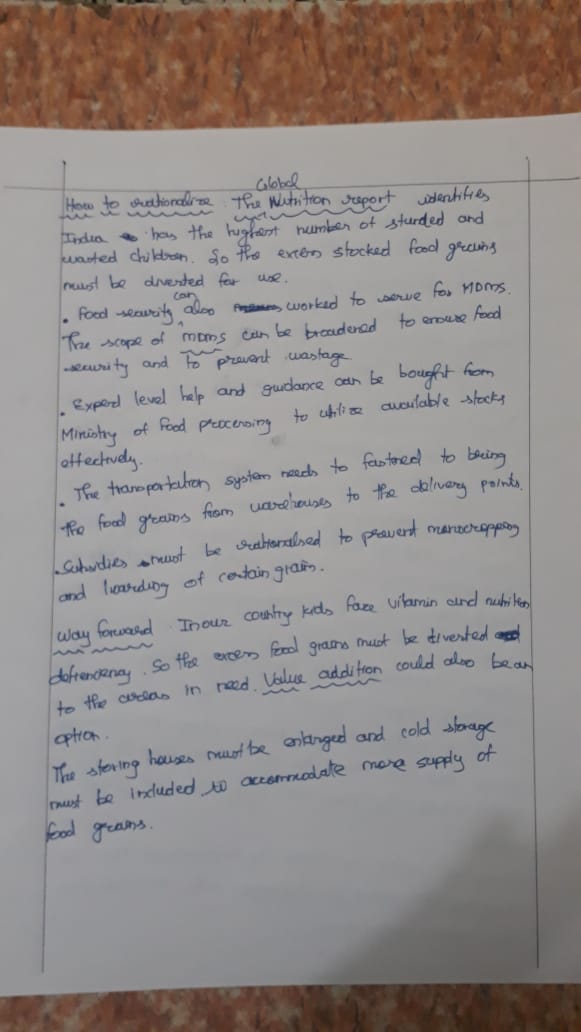 How to rationalize : The Global Nutrition report identifies
India has the highest number of stunded and
wasted children. So the excess stocked food grains
must be diverted for use.
• Food security can also worked to serve for MDMs.
The scope of MDMs can be broadened to ensure food
security and to prevent wastage
• Experd level help and guidance can be bought from
Ministry of Food processing to utilize available stocks
effectively.
• The transportation system needs to fastened to bring
the food grains from warehouses to the delivery points.
• Subsidies must be rationalised to prevent monocropping
and hoarding of certain grain.
Way forward In our country kids face vitamin and nutrition
defeciency. So the excess food grains must be diverted
to the areas in need. Value addition could also be an
option.
The storing houses must be enlarged and cold storage
must be included to accommodate more supply of
food grains.